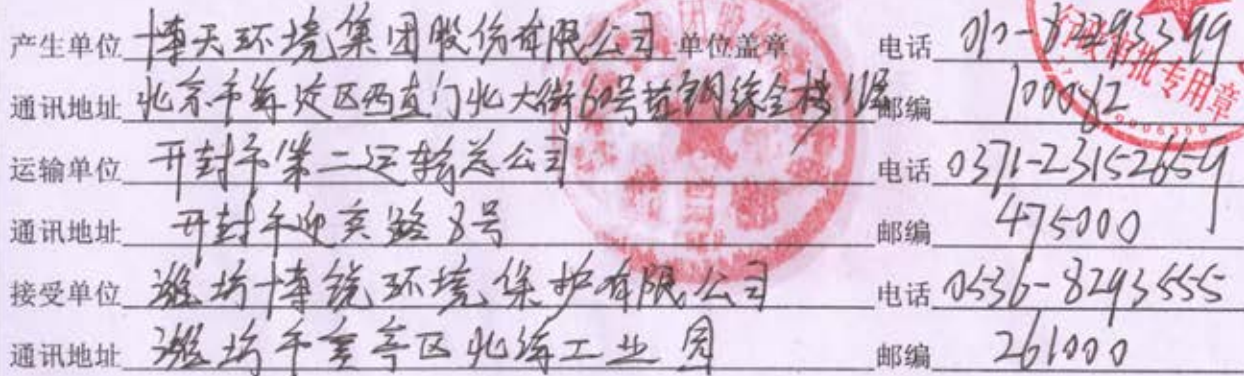 产生单位 博天环境集团股份有限公司 单位盖章 电话 010-82293399
通讯地址 北京市海淀区西直门北大街60号首钢综合楼 邮编 100082
运输单位 开封市第二运输总公司 电话 0371-23152659
通讯地址 开封市迎宾路8号 邮编 475000
接受单位 潍坊博锐环境保护有限公司 电话 0536-8293555
通讯地址 潍坊市奎文区北海工业园 邮编 261000
行政审批专用章